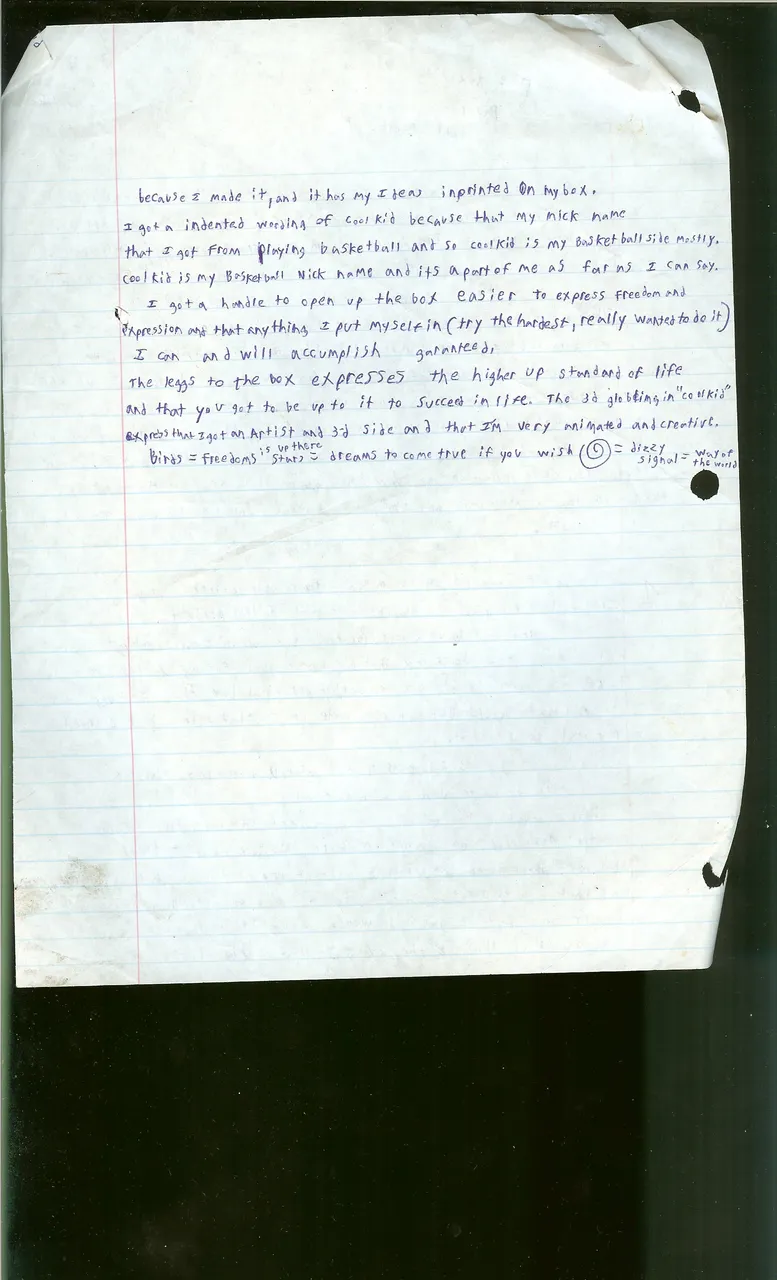 because I made it, and it has my Ideas inprinted On my box.
I got a indented wording of cool kid because that my nick name
that I got from playing basketball and so coolkid is my Basketball side mostly.
cool kid is my Basketball Nick name and its a part of me as far as I can say.
I got a handle to open up the box easier to express freedom and
expression and that anything I put myself in (try the hardest, really wanted to do it)
I can and will accumplish garanteed,
The leggs to the box expresses the higher up standard of life
and that you got to be up to it to succeed in life. The 3d in "coolkid"
express that I got an Artist and 3-d side and that I'm very animated and creative.
is up there
Birds = freedoms stars = dreams to come true if you wish = dizzy signal = way of the world